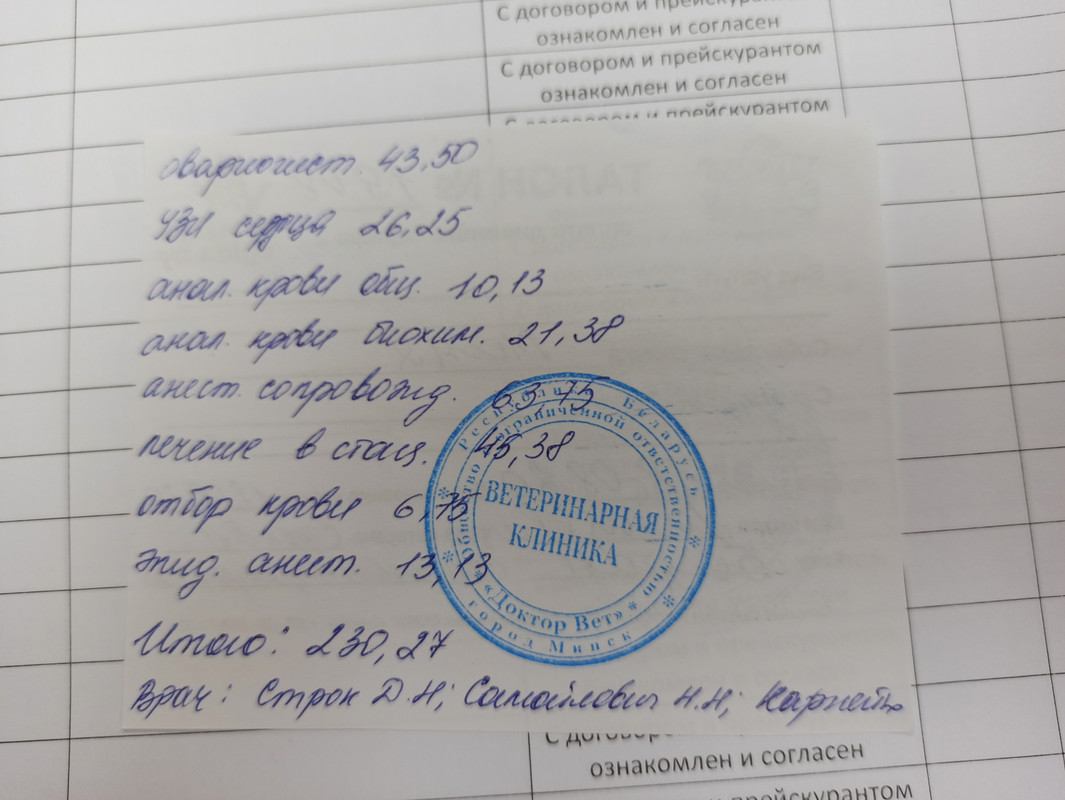 С договором и прейскурантом
ознакомлен и согласен
С договором и прейскурантом
ознакомлен и согласен
С договором и прейскурантом
ТАЛОН №
овариогист. 43,50
УЗИ сердца 26,25
анал. крови общ. 10,13
анал. крови биохим. 21,38
анест. сопровожд. 63,75
лечение в стац. 45,38
отбор крови 6,75
эпид. анест. 13,13
Итого: 230,27
Врач: Строк Д.Н; Самойлович Н.Н;
Республика Беларусь
Общество с ограниченной ответственностью
ВЕТЕРИНАРНАЯ
КЛИНИКА
«Доктор Вет»
город Минск
С договором
ознакомлен и согласен
С договором и прейскурантом